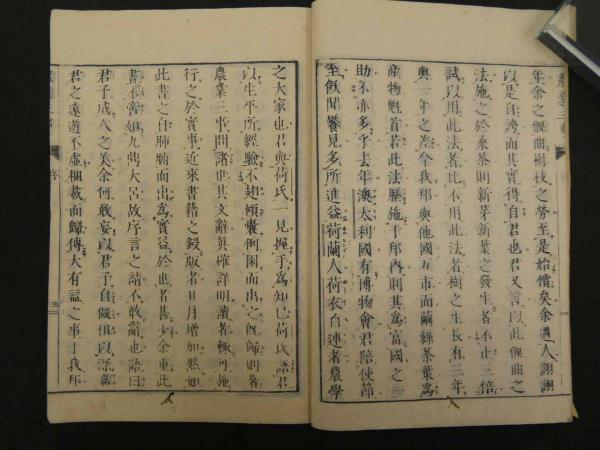 農業三事
年余之偃曲樹枝之勞至是始償矣余遇人詡詡
以是自誇而其實得自君也君又言以此偃曲之
法施之於桑茶則新芽新葉之發生者不止三倍
試以用此法者比不用此法者樹之生長有三年
與一年之差今我邦與他國互市而繭絲茶葉爲
産物魁首若此法歷施于邦內則其爲富國之
助不亦多乎去年澳太利國有博物會君陪使節
至飫聞饜見多所進益荷蘭人荷衣白連者農學
之大家也君與荷氏一見握手爲知己荷氏語君
以生平所經驗不翅傾囊倒囷而出之既歸則著
農業三事問諸世其文辭眞確詳明讀者輙可施
行之於實事近來書籍之鋟版者日月增加然如
此書之自肺腑而出爲實益於世者甚少余重此
書不啻如九鼎大呂故序言之請不敢辭也語曰
君子成人之美余何敢妄以君子自儗但以深嘉
君之遠遊不虛梱載而歸傳大有益之事于我邦
序
三